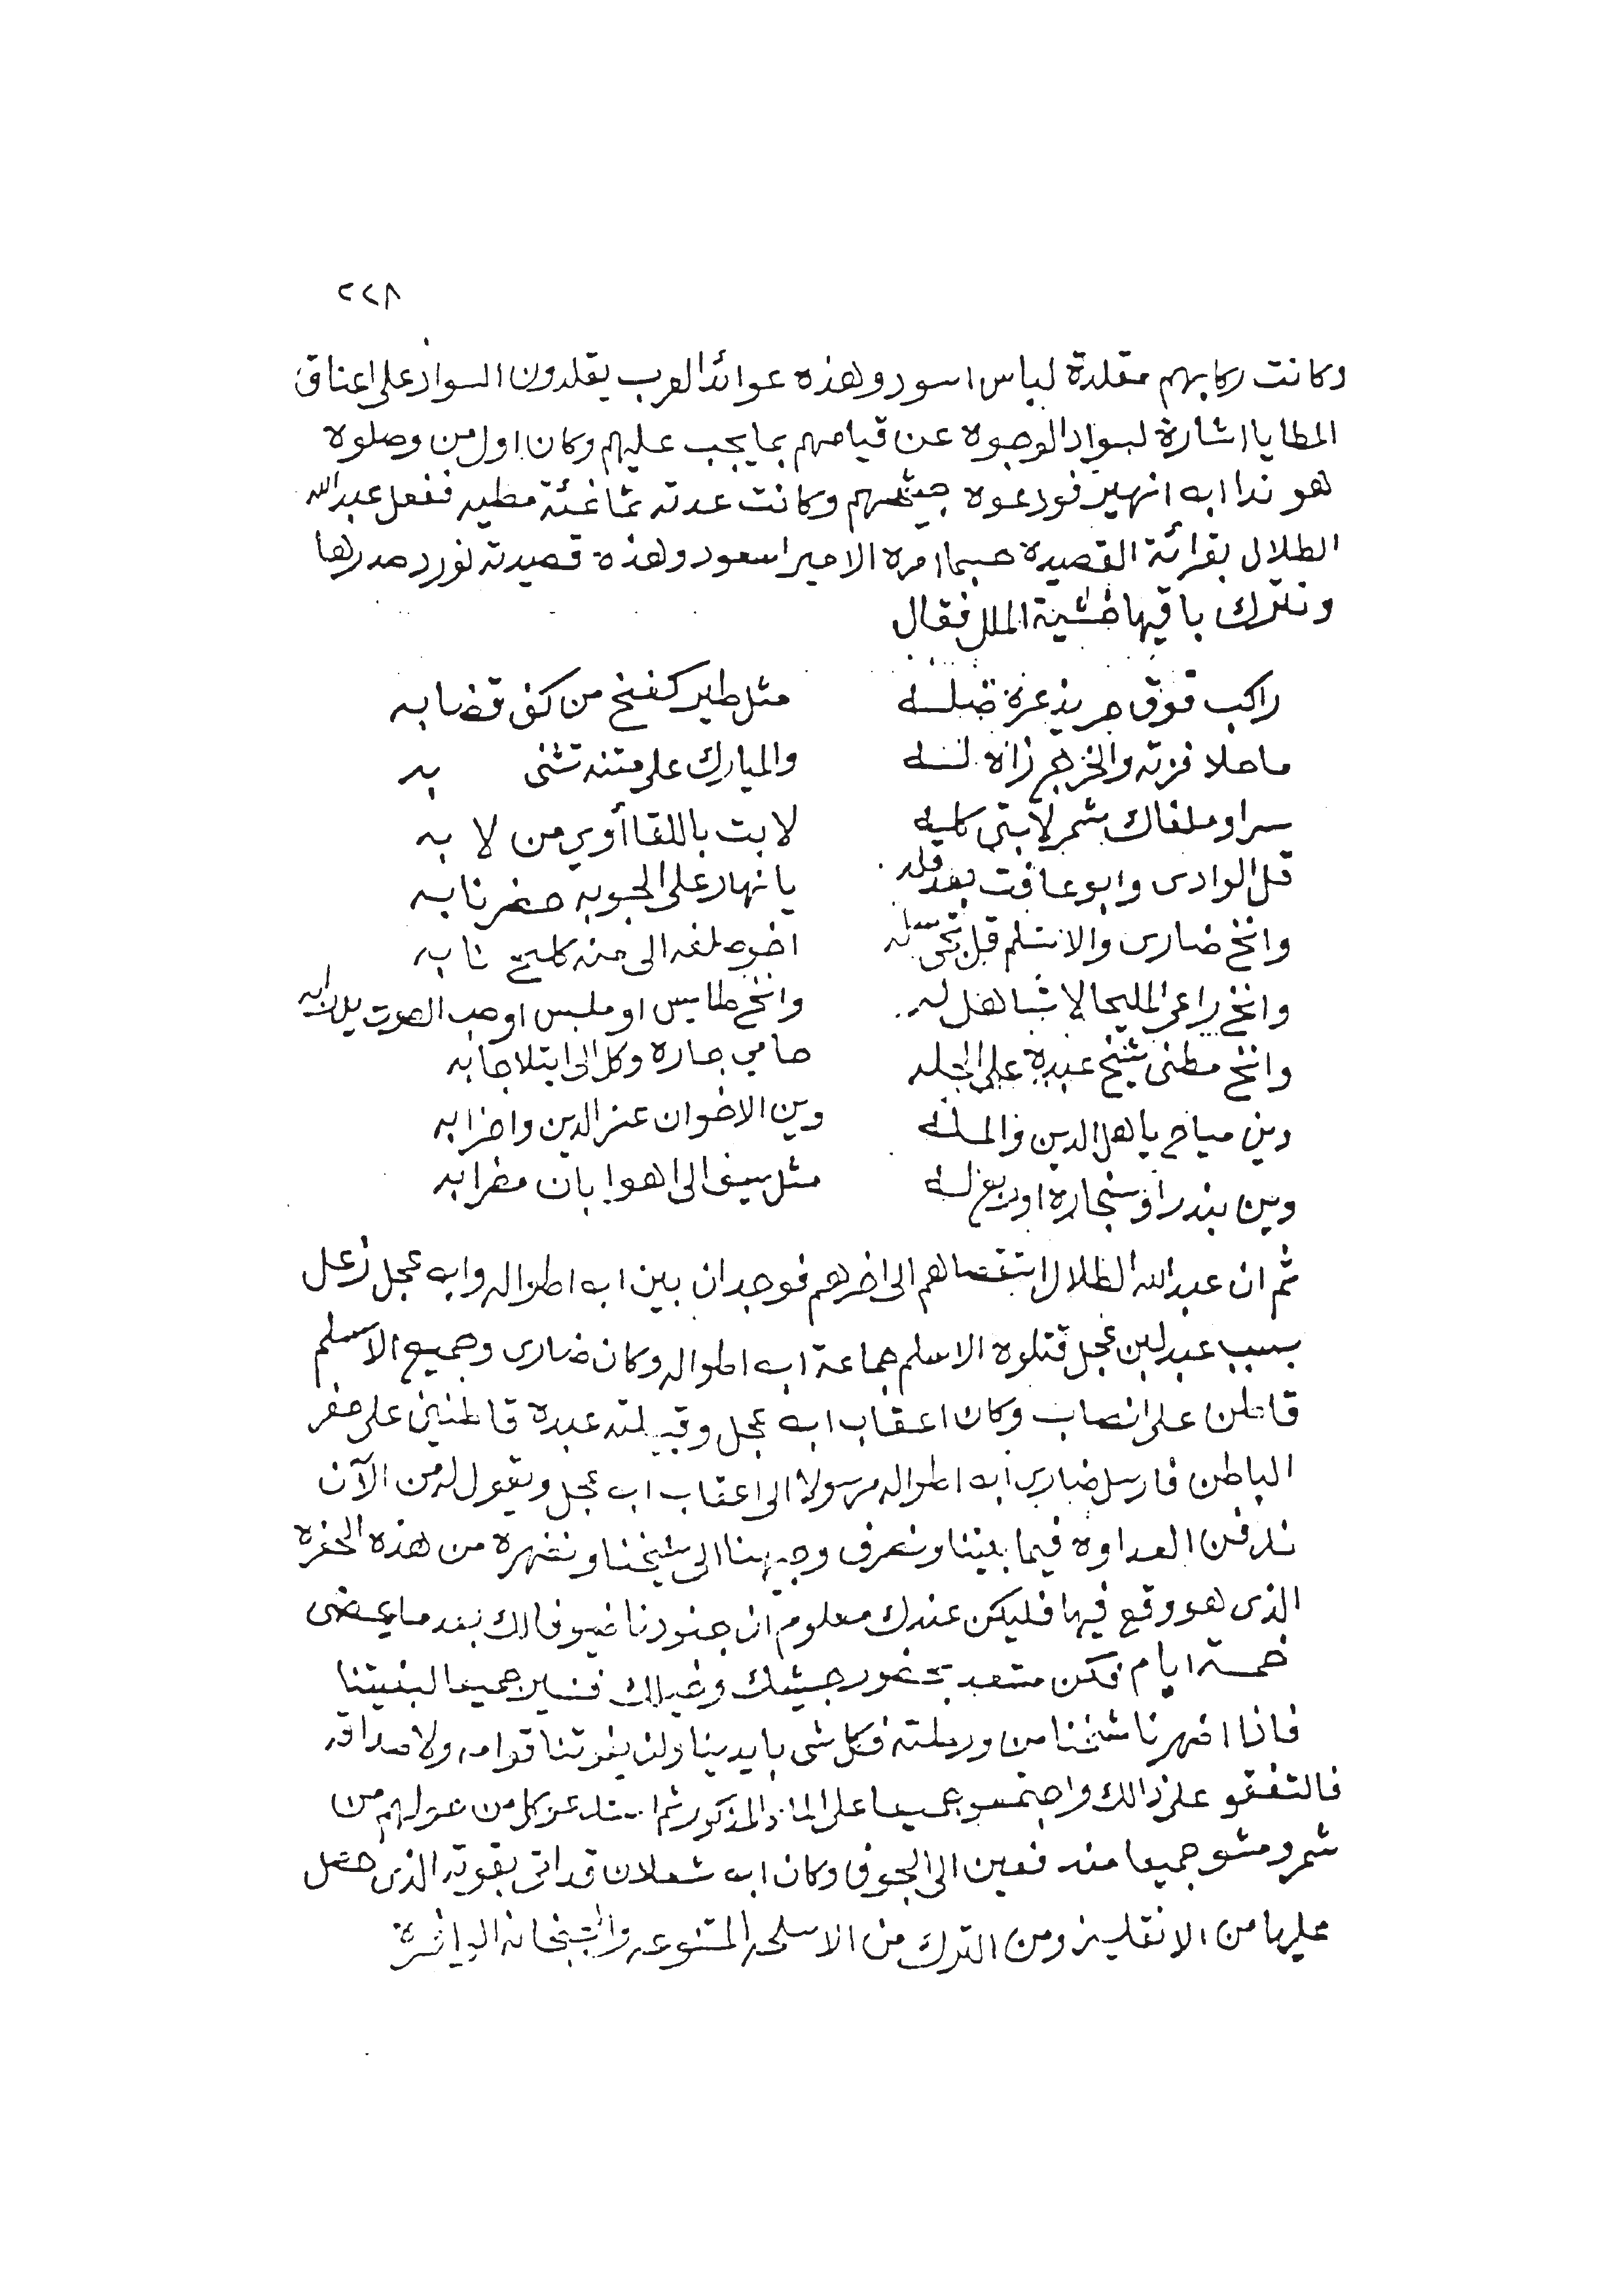 ٢٢٨
وكانت ركابهم مقلدة لباس اسود وهذه عوائد العرب يقلدون السواد على اعناق
المطايا اشارة لسواد الوجوه عن قيامهم بما يجب عليهم وكان اول من وصلوه
هو ندا ابه انهير فودعوه جيشهم وكانت عدته ثمانمئة مطيه ففعل عبدالله
الطلال بقرائة القصيدة حسبما امره الامير اسعود وهذه قصيدته نورد صدرها
ونترك باقيها خشية الملل فقال
راكب فوق حر يذعره ضله مثل طير كفخ من كف قضابه
ماحلا فزته والخرج زاه له والمبارك على متنه تثنى به
سر او ملفاك شمر لابتي كليه لابت باللقا أوي من لا به
قل الوادى وابو عافت بعد قله يانهار على الجوبه حضرنا به
وانخ ضارى والاسلم قبل تحى اخوه صلفه الى منه كلح نا به
وانخ راعى المليحا لا تساهل له وانخ طاميس او ملبس او حب الصوت يلا ابه
وانخ مطنى شيخ عبدة على الجله حامي جاره وكل الى ابتلا جا به
وين مياح ياهل الدين والمله وين الاخوان عنز الدين واحزابه
وين بندر او سنجاره اوربع له مثل سيف الى اهوا بان مضرابه
ثم ان عبدالله الطلال استقصاهم الى اخرهم فوجد ان بين ابه اطواله وابه عجل زعل
بسبب عبد لبن عجل قتلوه الاسلم جماعة ابه اطواله وكان ضارى وجميع الاسلم
قاطن على انصاب وكان اعقاب ابه عجل وقبيلته عبدة قاطنين على حفر
الباطن فارسل ضارى ابه اطواله مرسولا الى اعقاب ابه عجل ويقول له من الآن
ندفن العداوه فيما بيننا ونصرف وجيهنا الى شيخنا ونظهره من هذه الحفره
الذى هو وقع فيها فليكن عندك معلوم ان جنودنا توفالك بعد ما يمضى
خمسة ايام فكن مستعد بحضور جيشك وخيلك فنسير جميعا لبغيتنا
فاذا اظهرنا شيخنا من ورطته فكل شى بايدينا ولن يفوتنا قوامه ولا صداقه
فالتفقو على ذالك واجتمعو جميعا على الماء المذكور ثم استدعو كل من حولهم من
شمر ومشو جميعا منه فعين الى الجوف وكان ابه شعلان قد اتى بقوته الذى حصل
عليها من الانقليز ومن الترك من الاسلحه المتنوعه والجبخانه الوافرة